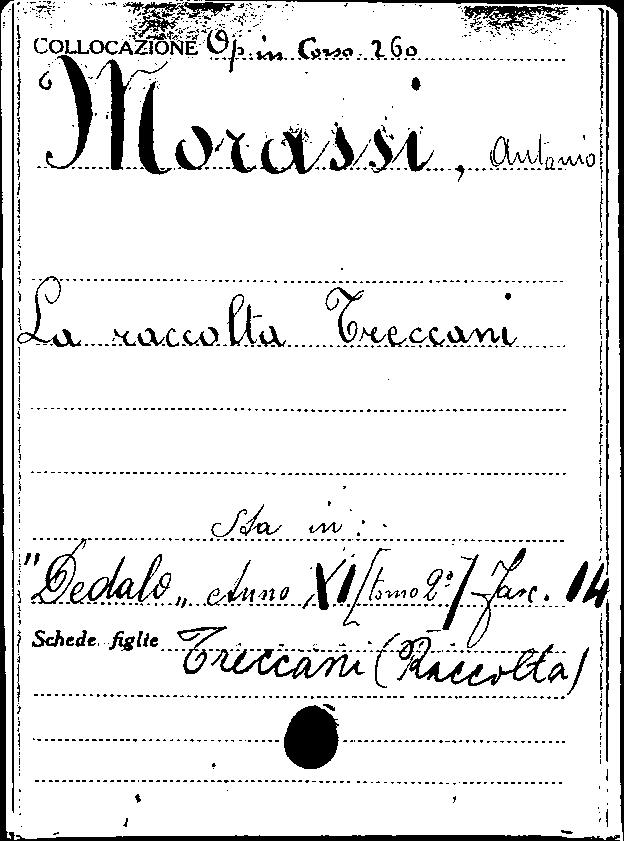 COLLOCAZIONE Op. in Corso 260
Morassi, Antonio
La raccolta Treccani
Sta in:
"Dedalo„ Anno XI [tomo 2º] Fasc. 14
Schede figlie Treccani (Raccolta)